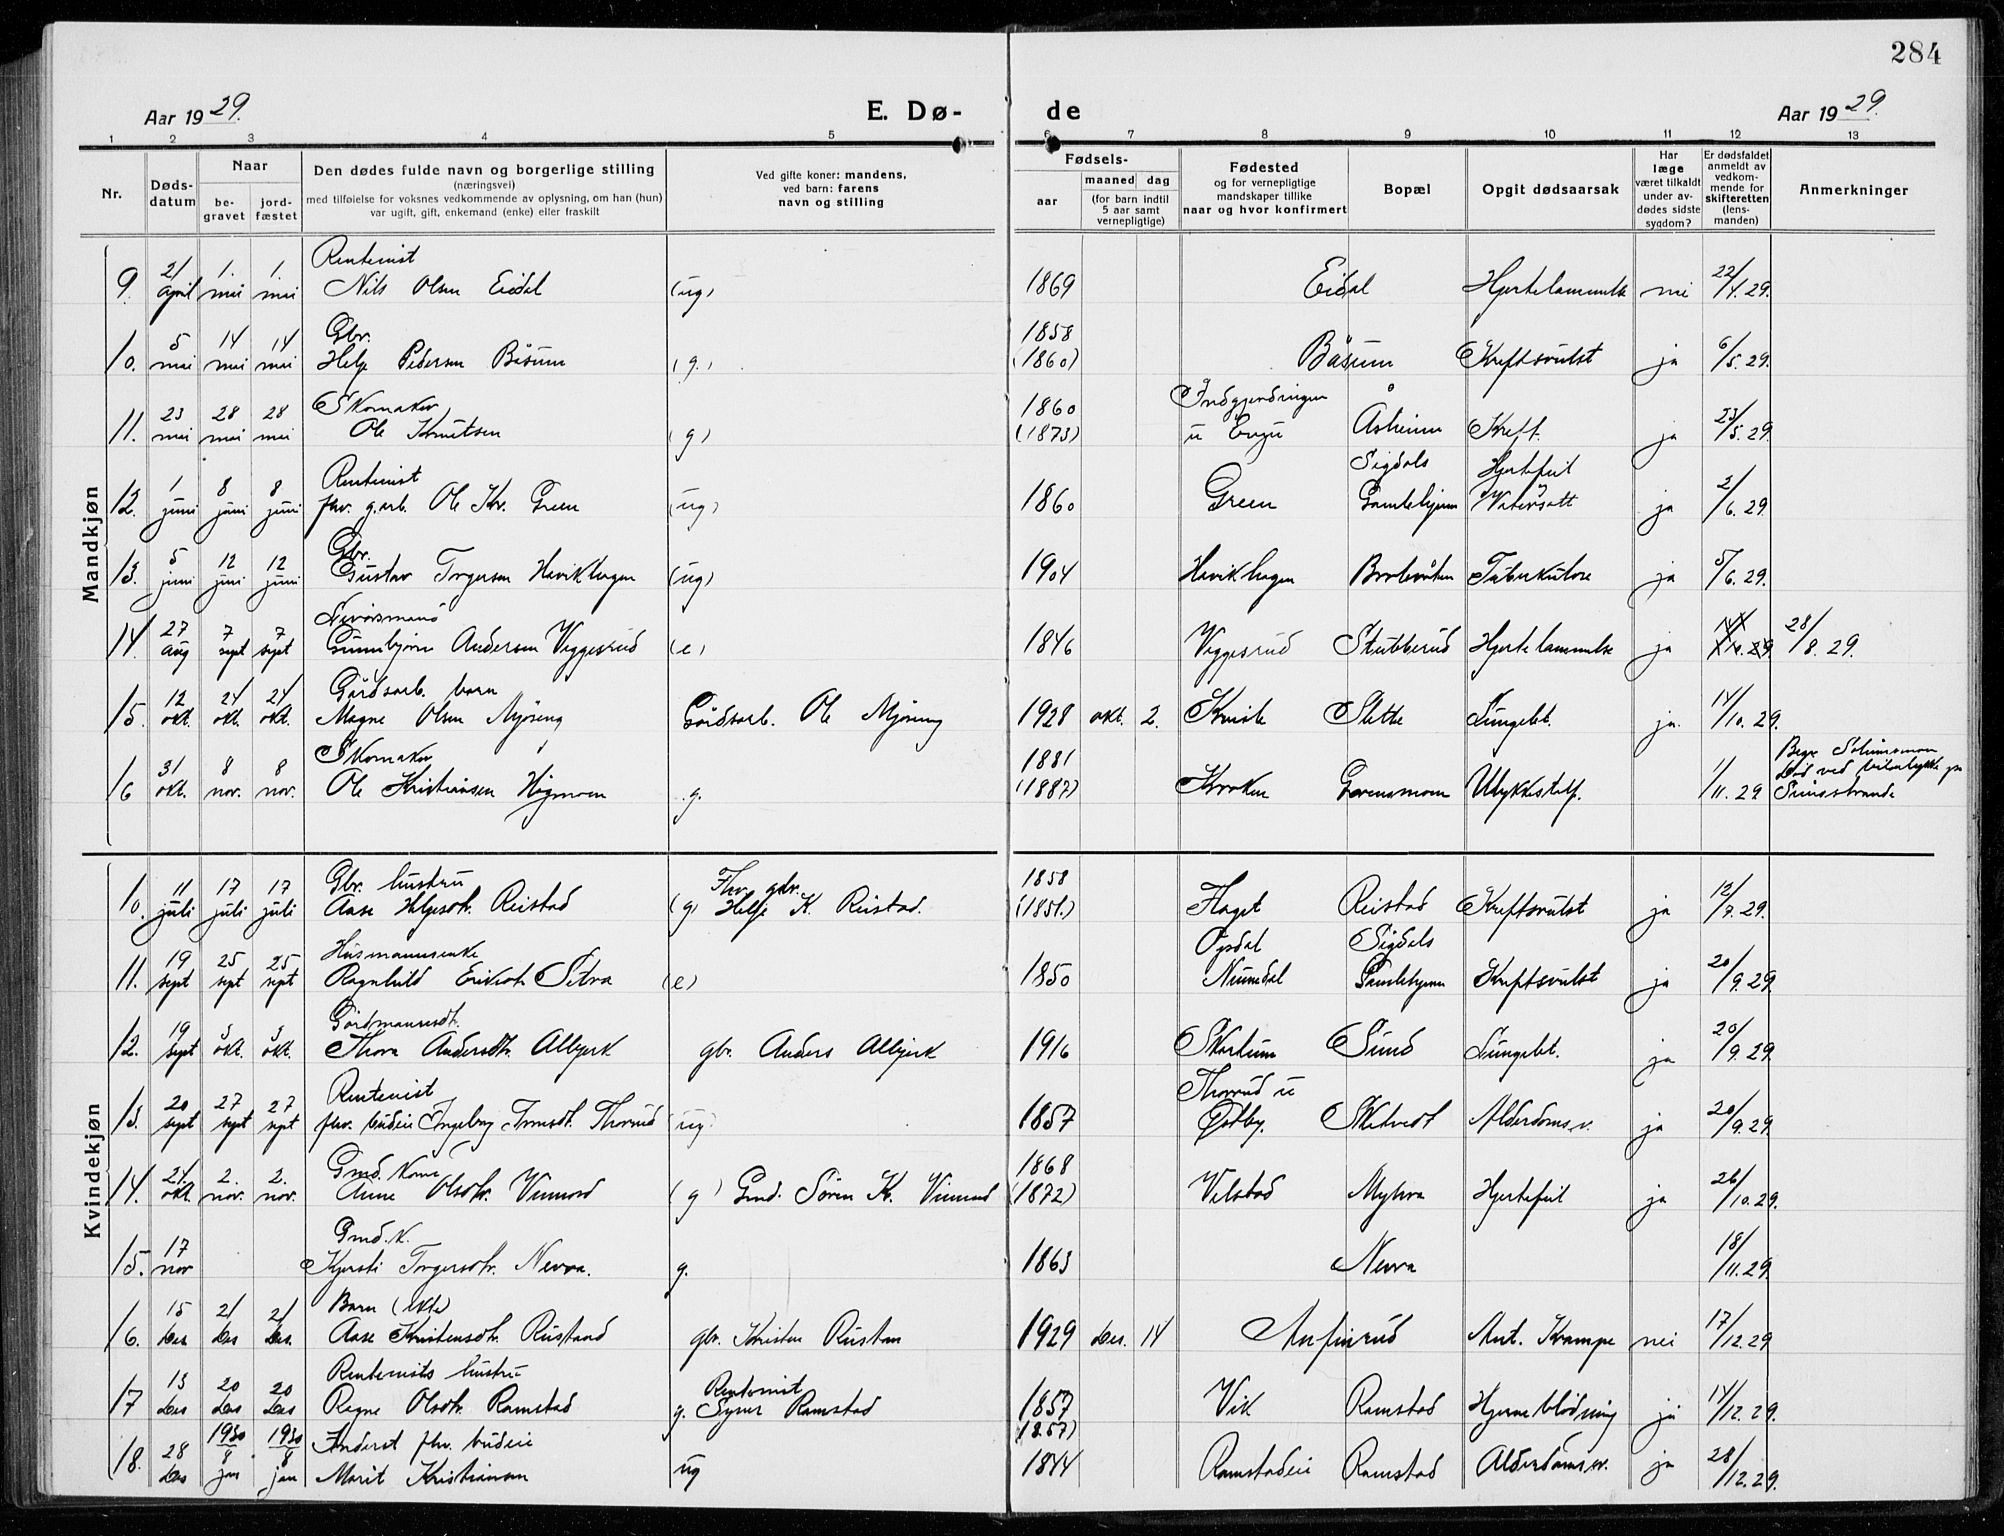 284
Aar 1929.
E. Dø-
de
Aar 1929.
1 2 3 4 5 6 7 8 9 10 11 12 13
Nr.
Døds-
datum
Naar
be-
gravet
jord-
fæstet
Den dødes fulde navn og borgerlige stilling
(næringsvei)
med tilføielse for voksnes vedkommende av oplysning, om han (hun)
var ugift, gift, enkemand (enke) eller fraskilt
Ved gifte koner: mandens,
ved barn: farens
navn og stilling
Fødsels-
aar
maaned dag
(for barn indtil
5 aar samt
vernepligtige)
Fødested
og for vernepligtige
mandskaper tillike
naar og hvor konfirmert
Bopæl
Opgit dødsaarsak
Har
læge
været tilkaldt
under av-
dødes sidste
sygdom?
Er dødsfaldet
anmeldt av
vedkom-
mende for
skifteretten
(lens-
manden)
Anmerkninger
Mandkjøn
Rentenist
9. 21 april 1. mai 1. mai Nils Olsen Eidal (ug) 1869 Eidal Hjertelammelse nei 22/4. 29.
Gbr. 1858
10. 5 mai 14 mai 14 mai Helge Pedersen Båsum (g.) (1860) Båsum Kreftsvulst ja 6/5. 29.
Skomaker 1860
11. 23 mai 28 mai 28 mai Ole Knutsen (g) (1873) u Enger Åsheim Kreft. ja 23/5. 29.
Rentenist Sigdals Hjertefeil
12. 1 juni 8 juni 8 juni fhv. g.arb. Ole Kr. Green (ug) 1860 Green Gamlehjem Vatersott ja 2/6. 29.
Gbr.
13. 5 juni 12 juni 12 juni Gustav Torgersen Havikhagen (ug) 1904 Havikhagen Tuberkulose ja 5/6. 29.
14. 27 aug 7 sept 7 sept Gunbjørn Andersen Viggesrud (e) 1846 Viggesrud Stubberud Hjertelammelse ja 28/8. 29.
Gårdsarb. barn
15. 12 okt. 24 okt. 24 okt. Magne Olsen Mjøseng Gårdsarb. Ole Mjøseng 1928 okt. 2. Slette Lungebet. ja. 14/10. 29.
Skomaker 1881
16 31 okt. 8 nov. 8 nov. Ole Kristiansen Høgmoen g. (1887) Kroken Ulykkestilf. 1/11. 29
Kvindekjøn
Gbr. hustru Fhv. gbr. 1858
10. 11 juli 17 juli 17 juli Aase Helgesdtr. Reistad (g) Helge K. Reistad. (1851.) Haget Reistad Kreftsvulst ja 12/7. 29.
Husmannsenke Opdal Sigdals
11. 19 sept 25 sept 25 sept Ragnhild Eriksdtr. (e) 1850 Numedal Gamlehjem Kreftsvulst ja 20/9. 29.
Gårdmannsdt.
12. 19 sept 3 okt. 3 okt. Thora Andersdtr. Albjerk gbr. Anders Albjerk 1916 Skartum Sund Lungebet. ja 20/9. 29.
Rentenist Thorrud u
13. 20 sept 27 sept 27 sept fhv. budeie Ingeborg Thorrud (ug) 1857 Østby. Sketvedt Alderdomsv. ja 20/9. 29.
Gmd. kone 1868
14. 24. okt. 2. nov. 2. nov. Anne Olsdtr. Vinnord (g) Gmd. Søren K. Vinnord (1872) Velstad Myhra Hjertefeil ja 26/10. 29.
Gmd. k.
15. 17 nov Kjersti Torgersdtr. Nevra. g. 1863 Nevra 18/11. 29.
Barn (ekte)
16. 15 des 21 des 21 des. Aase Kristensdtr. Rustand gbr. Kristen Rustan 1929 des. 14 Anfinrud Ant. Krampe nei 17/12. 29
Rentenists hustru Rentenist
17 13 des 20 des 20 des Ragne Olsdtr. Ramstad g. Syver Ramstad 1857 Vik Ramstad Hjerneblødning ja 14/12. 29.
1930 1930 fhv. budeie (1857)
18. 28 des 8 jan 8 jan Marit Kristiansen ug 1844 Ramstadeie Ramstad Alderdomsv. ja 28/12. 29.